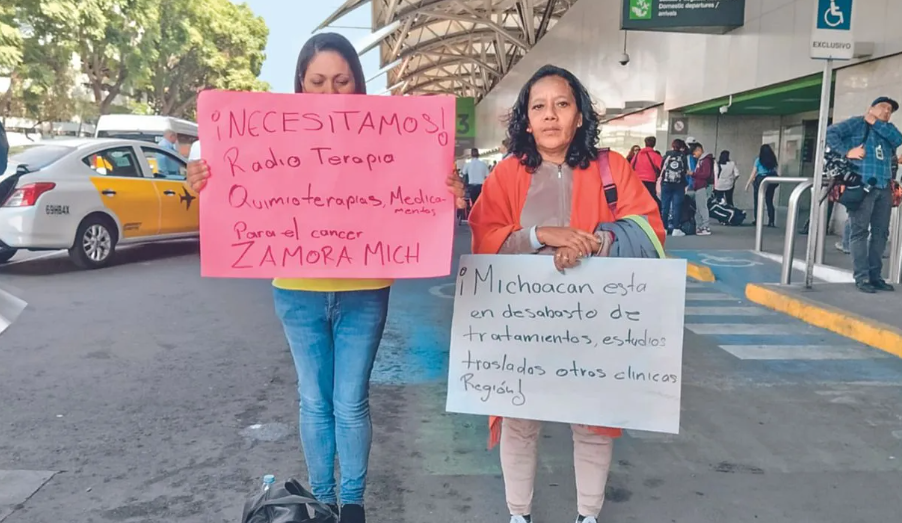 ¡NECESITAMOS!
Radio Terapia
Quimioterapias, Medica-
mentos
Para el cancer
ZAMORA MICH
¡Michoacan esta
en desabasto de
tratamientos, estudios
traslados otros clinicas
Región!
Domestic departures /
arrivals
EXCLUSIVO
3
69H84X